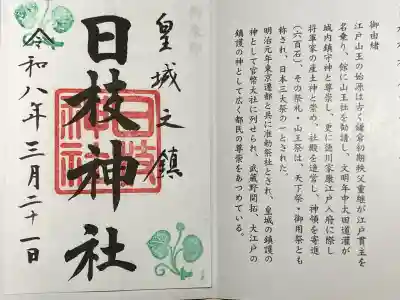 御由緒
江戸山王の始源は古く鎌倉初期秩父重継が江戸貫主を
名乗り、館に山王社を勧請し、文明年中太田道灌が
城内鎮守神と尊崇し、更に徳川家康江戸入府に際し
将軍家の産土神と崇め、社殿を造営し、神領を寄進
(六百石)。その祭礼・山王祭は、天下祭・御用祭とも
称され、日本三大祭の一とされた。
明治元年東京遷都と共に准勅祭社とされ、皇城の鎮護の
神として官幣大社に列せられ、武蔵野開拓、大江戸の
鎮護の神として広く都民の尊崇をあつめている。
皇城之鎮
日枝神社
日枝神社
令和八年三月二十一日